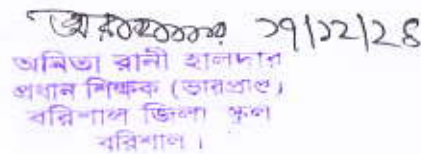 ১৭/১২/২৪
অনিতা রানী হালদার
প্রধান শিক্ষক (ভারপ্রাপ্ত)
বরিশাল জিলা স্কুল
বরিশাল।